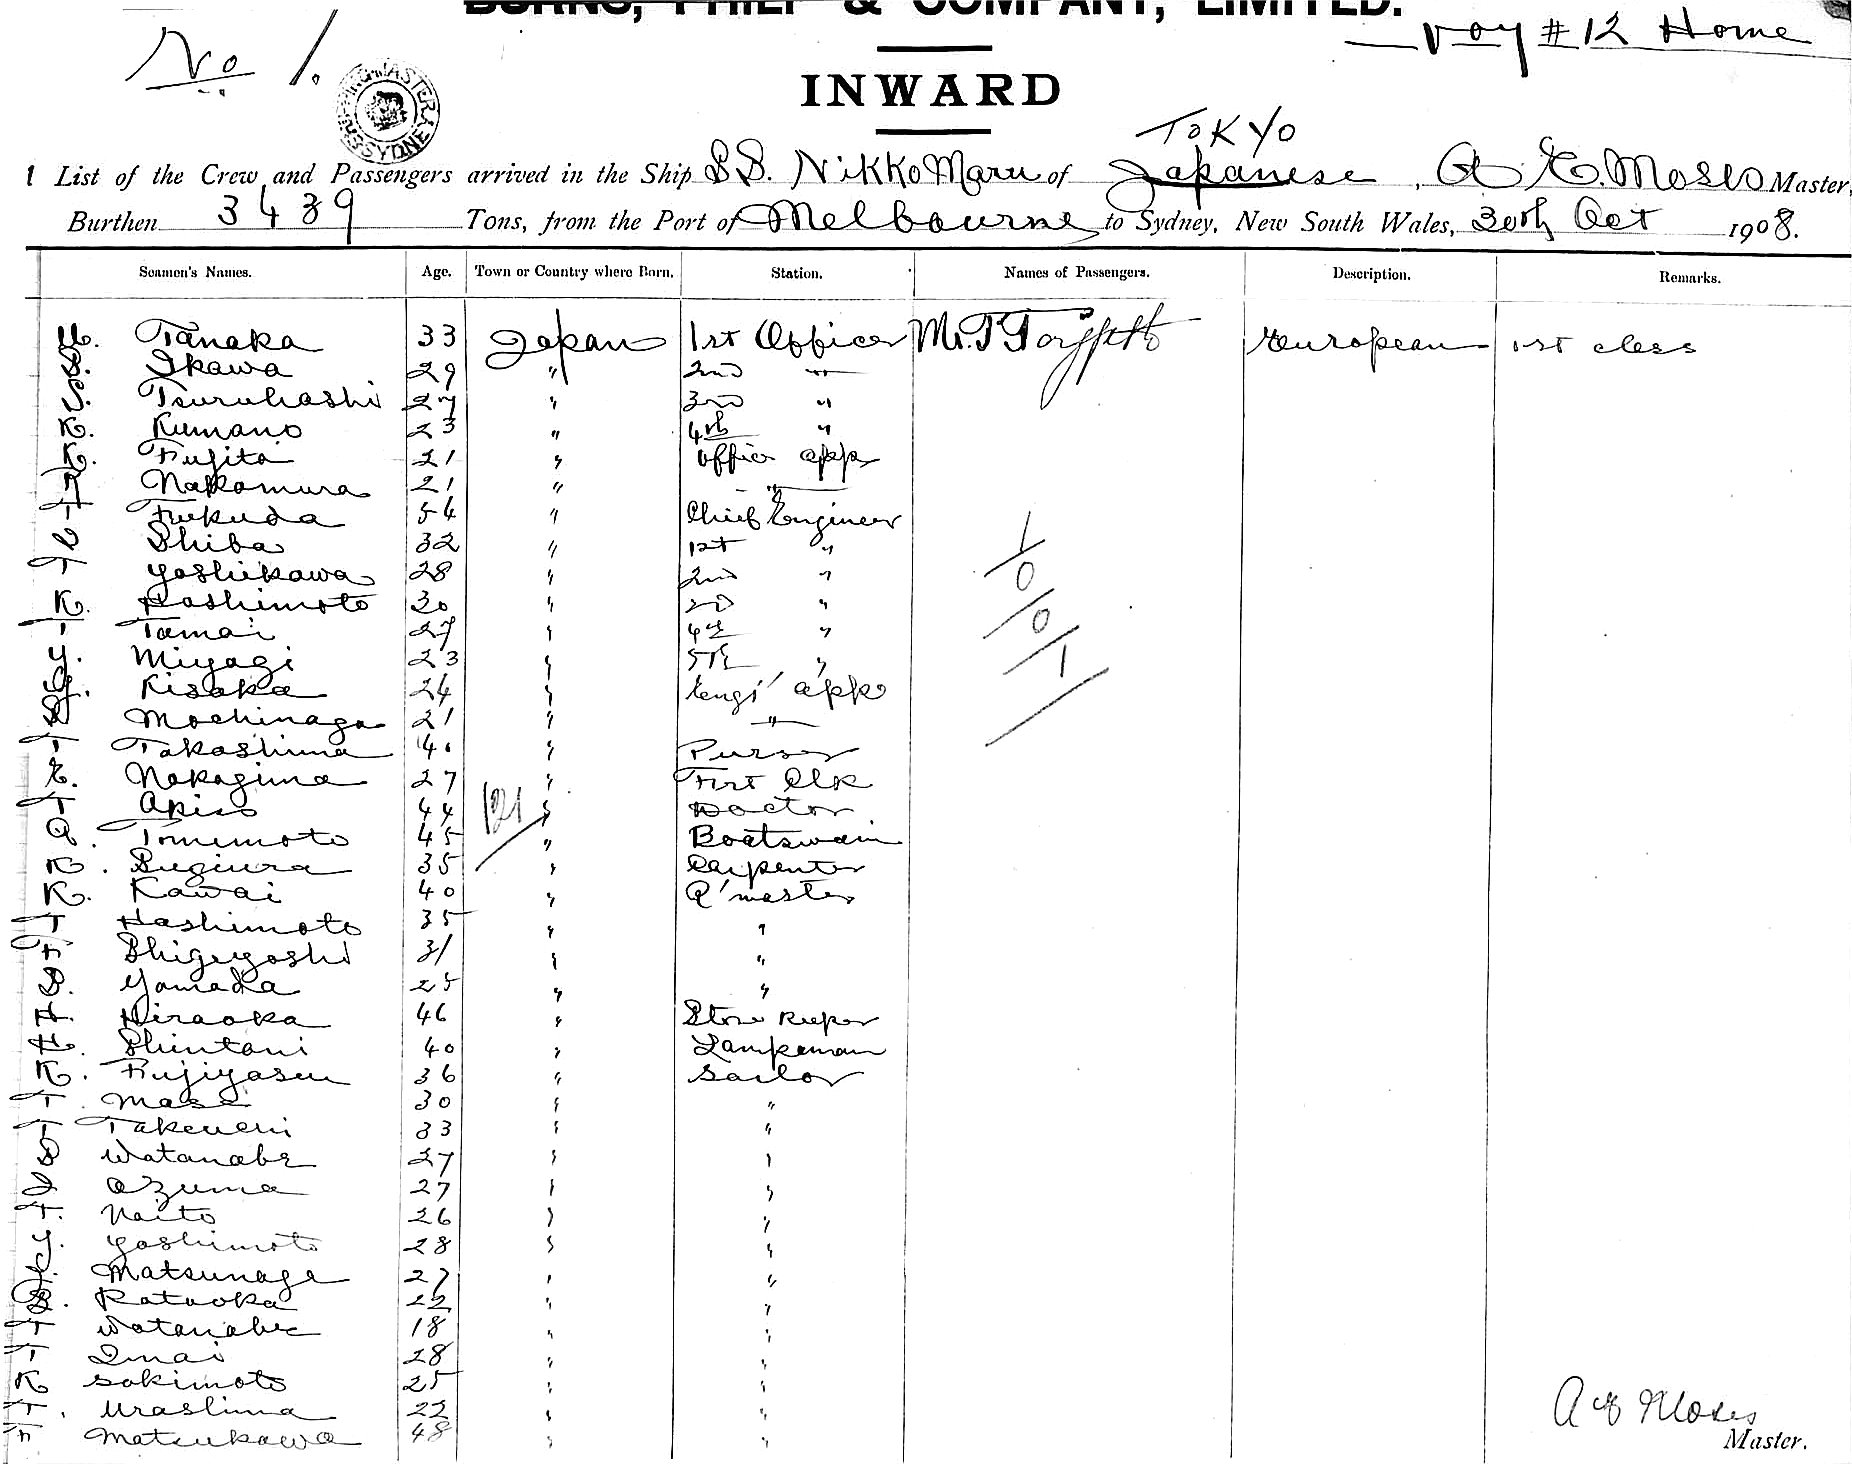 BURNS, PHILP & COMPANY, LIMITED.
No 1.
Voy # 12 Home
INWARD
TOKYO
List of the Crew and Passengers arrived in the Ship S.S. Nikko Maru of Japanese, A E. Moses Master,
Burthen 3439 Tons, from the Port of Melbourne to Sydney, New South Wales, 30th Oct 1908.
Seamen's Names. Age. Town or Country where Born. Station. Names of Passengers. Description. Remarks.
Tanaka 33 Japan 1st Officer Mr. T Forsyth European 1st class
Ikawa 29 " 2nd "
Tsuruhashi 27 " 3rd "
K. Kumano 23 " 4th "
K. Fujita 21 " Office app
Nakamura 21 " "
Fukuda 54 " Chief Engineer
Shiba 32 " 1st "
T Yoshikawa 28 " 2nd "
K. Hashimoto 30 " 3rd "
T Tamai 27 " 4th "
Y. Miyagi 23 " 5th "
Y. Kisaka 24 " Engr' app
S Mochinaga 21 " "
T Takashima 40 " Purser
E. Nakagima 27 " First Clk
T Akiso 44 " Doctor
121
Q. Tomimoto 45 " Boatswain
K. Sugiura 35 " Carpenter
K. Kawai 40 " Q'master
T Hashimoto 35 " "
F Shigeyoshi 31 " "
S. Yamada 25 " "
H. Hiraoka 46 " Store Keeper
H. Shintani 40 " Lampsman
K. Fujiyasu 36 " Sailor
T. Masai 30 " "
T Takeuchi 33 " "
S Watanabe 27 " "
I Azuma 27 " "
T. Naito 26 " "
Y. Yoshimoto 28 " "
Matsunaga 27 " "
S. Kataoka 22 " "
T Watanabe 18 " "
T Imai 28 " "
K Sakimoto 25 " "
T. Urashima 22 " "
F Matsukawa 48 " "
1/0/0/1/
A E Moses
Master.